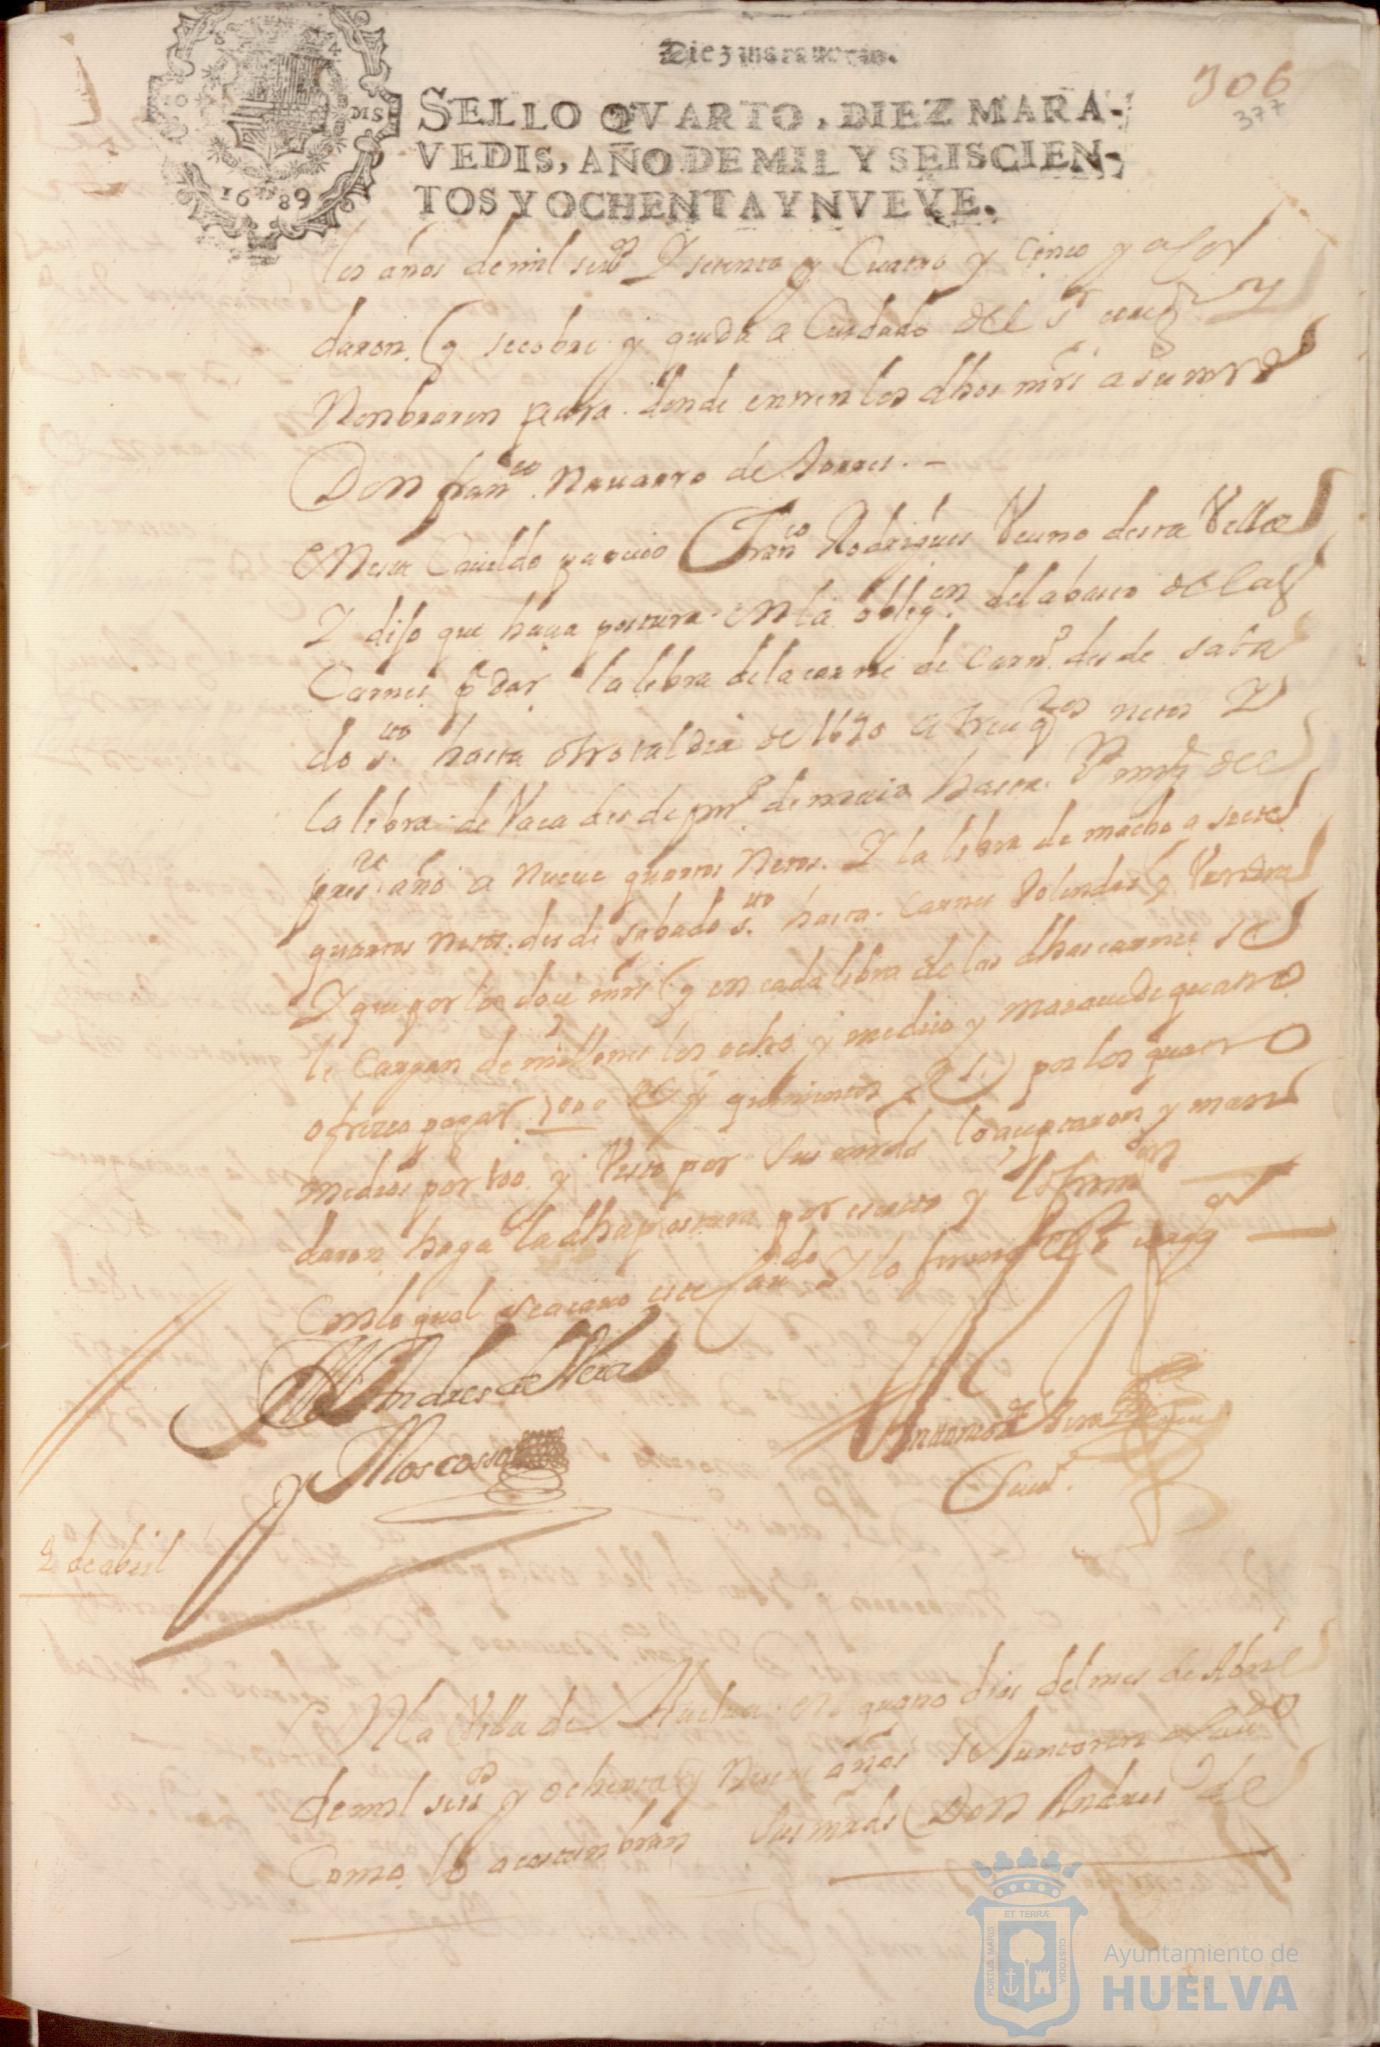 Diez marauedis.
306
377
SELLO QVARTO, DIEZ MARA-
VEDIS, AÑO DE MIL Y SEISCIEN-
TOS Y OCHENTA Y NVEVE.
1689
los años de mil seisos Y setenta y Cuatro y Cinco y
daron q se cobre y queda a Cuidado del sr
Nonbraron para donde entren los dhos mrs a su mrd
Don franco Nauarro de torres.
En este Cauildo parecio franco Rodrigues Vecino desta Villa
Y dijo que haca postura en la obligon del abasto de las
Carnes pa dar la libra de la carne de Carno desde saba
do sto hasta otro tal dia de 1690 a trece qtos netos Y
la libra de Vaca desde pro de maio hasta del
preste año a nueue quartos netos. Y la libra de macho a siete
quartos netos desde sabado sto hasta Carnes tolendas
Y que por los doce mrs q en cada libra de las dhas carnes se
le Cargan de millones los ocho y medio y marauedi quatro
ofrece pagar y quinientos por los quatro
medios por 100 y Visto por sus mrds lo aceptaron y man
daron haga la dha postura por escrito y lo firmaon
Con lo qual se acauo este Caudo Y lo firmo el sr
Don Andres de Vera
y Moscosso
Antonio de Vera
Scriuo
2 de abril
En la Villa de Huelua en quatro dias del mes de Abril
de mil seisos y ochenta y Nueue años se Juntaron a Caudo
Como lo acostunbran Sus mrds Don Andres de
PORTUS MARIS
ET TERRÆ
CUSTODIA
Ayuntamiento de
HUELVA